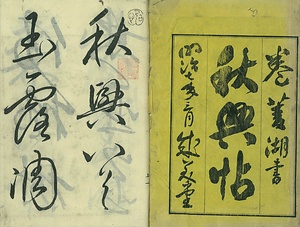 卷菱湖書
秋興帖
明治七年三月
秋興八首
玉露凋